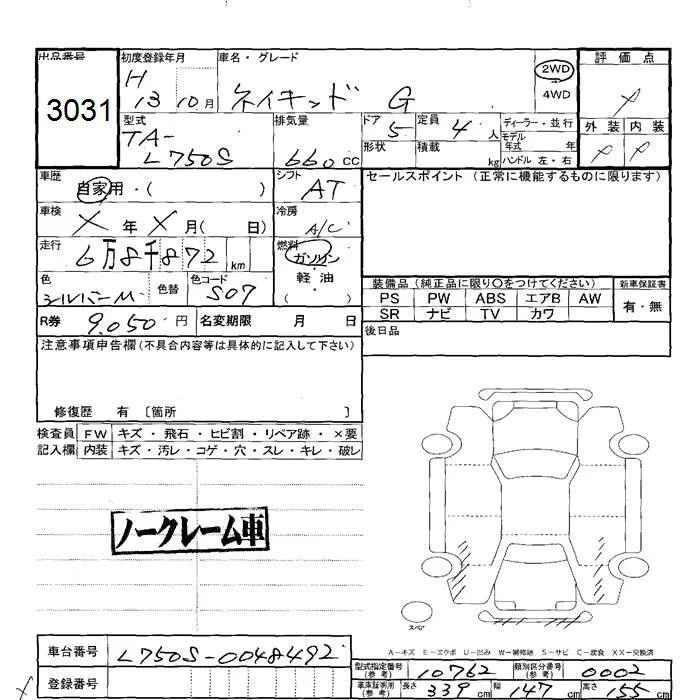 出品番号 初度登録年月 車名・グレード 評価点
3031 H 13 10月 ネイキッド G 2WD 4WD
型式 TA-L750S 排気量 660 cc ドア 5 定員 4人 ディーラー・並行 外装 内装
形状 積載 kg モデル年式 年 ハンドル 左・右
車歴 自家用・( ) シフト AT セールスポイント(正常に機能するものに限ります)
車検 X年X月( 日) 冷房 A/C
走行 6万8千872 km 燃料 ガソリン・軽油・
色 シルバーM 色替 色コード S07 装備品(純正品に限り○をつけてください) 新車保証書
PS PW ABS エアB AW 有・無
R券 9.050円 名変期限 月 日 SR ナビ TV カワ
注意事項申告欄(不具合内容等は具体的に記入して下さい) 後日品
修復歴 有 〔箇所 〕
検査員 FW キズ・飛石・ヒビ割・リペア跡・×要
記入欄 内装 キズ・汚レ・コゲ・穴・スレ・キレ・破レ
ノークレーム車
スペア
A-キズ E-エクボ U-凹み W-補修跡 S-サビ C-腐食 XX-交換済
車台番号 L750S-0048492 型式指定番号(参考) 10762 類別区分番号(参考) 0002
登録番号 車庫証明用(参考) 長さ 339 cm 幅 147 cm 高さ 155 cm